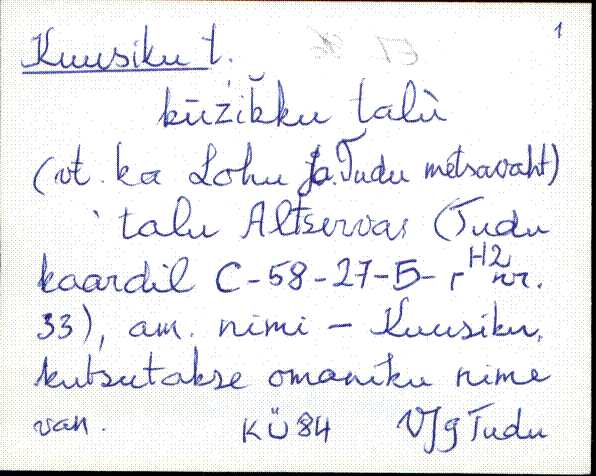 1
Kuusiku t.
kūžikku talù
(vt. ka Lohu ja Tudu metsavaht)
talu Altservas (Tudu
kaardil C-58-27-Б-г H2 nr.
33), am. nimi – Kuusiku,
kutsutakse omaniku nime
van. KÜ 84 VJg Tudu